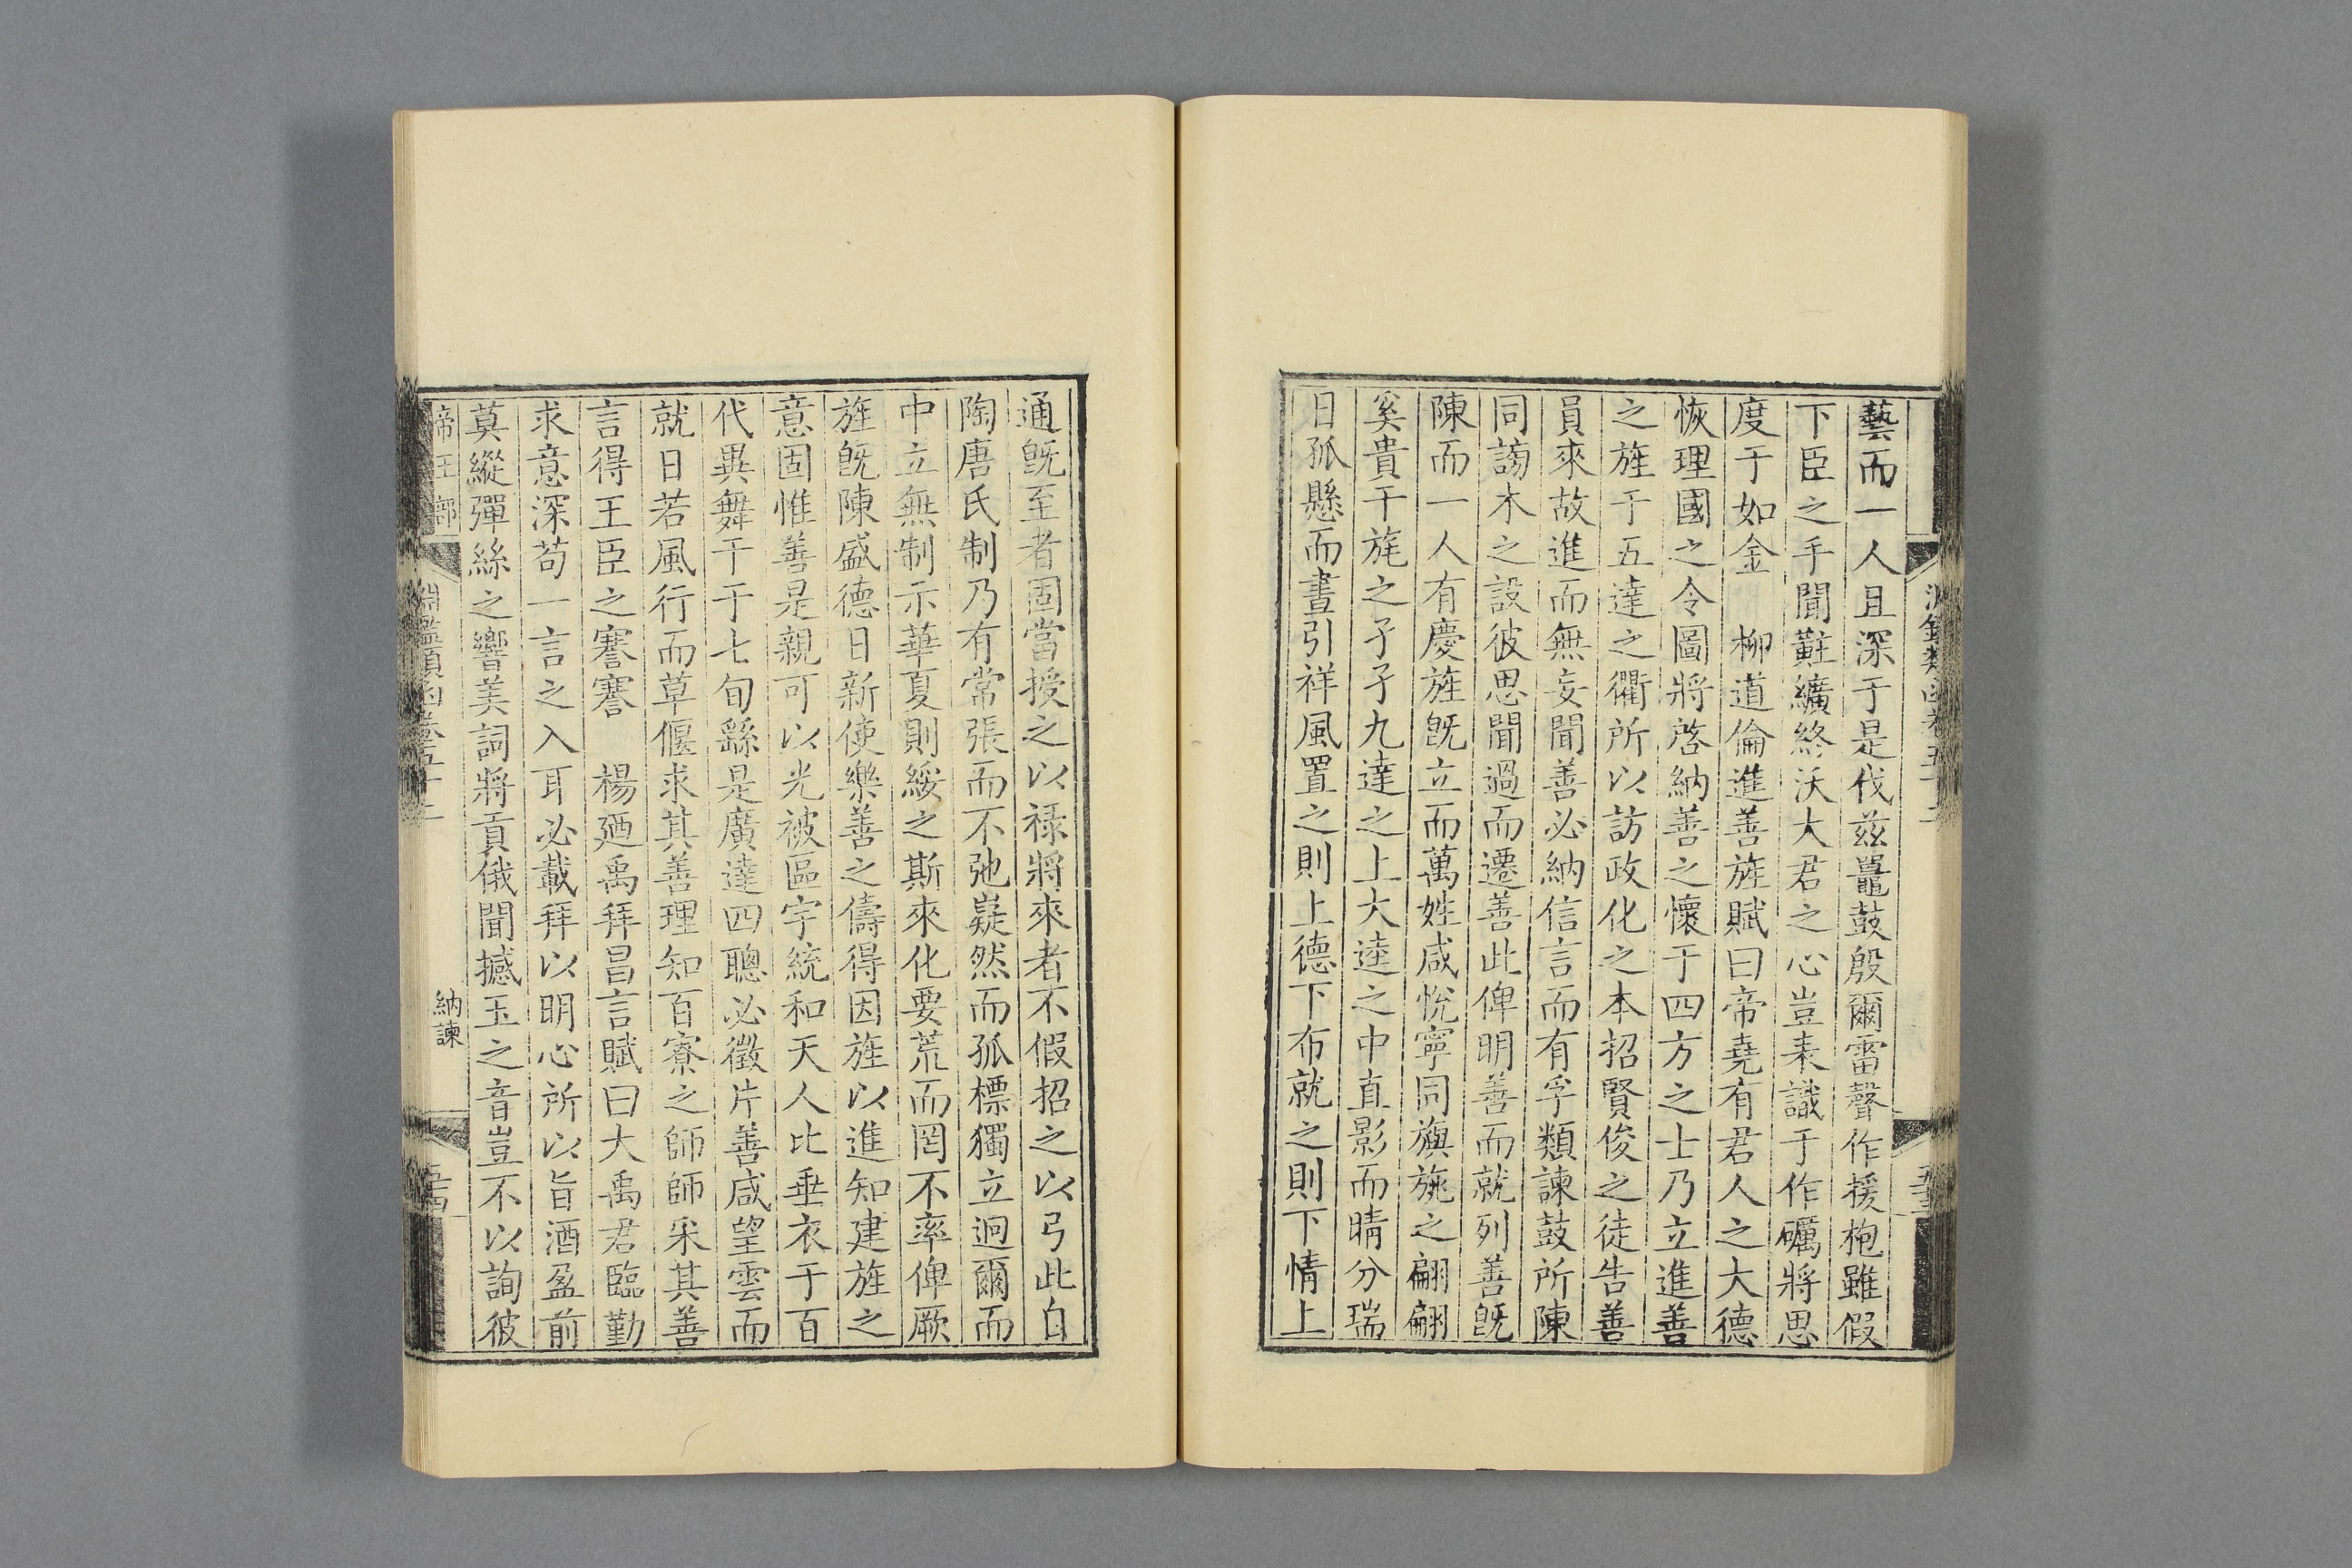 藝而一人且深于是伐茲鼉鼓殷爾雷聲作援枹雖假
下臣之手聞黈纊終沃大君之心豈秉識于作礪將思
度于如金　柳道倫進善旌賦曰帝堯有君人之大德
恢理國之令圖將啓納善之懷于四方之士乃立進善
之旌于五達之衢所以訪政化之本招賢俊之徒告善
員來故進而無妄聞善必納信言而有孚類諫鼓所陳
同謗木之設彼思聞過而遷善此俾明善而就列善旣
陳而一人有慶旌旣立而萬姓咸悅寧同旟旐之翩翩
奚貴干旄之孑孑九達之上大逵之中直影而晴分瑞
日孤懸而晝引祥風置之則上德下布就之則下情上
通旣至者固當授之以祿將來者不假招之以弓此自
陶唐氏制乃有常張而不弛嶷然而孤標獨立迥爾而
中立無制示華夏則綏之斯來化要荒而罔不率俾厥
旌旣陳盛德日新使樂善之儔得因旌以進知建旌之
意固惟善是親可以光被區宇統和天人比垂衣于百
代異舞干于七旬繇是廣達四聰必徵片善咸望雲而
就日若風行而草偃求其善理知百寮之師師采其善
言得王臣之謇謇　楊廼禹拜昌言賦曰大禹君臨勤
求意深苟一言之入耳必載拜以明心所以旨酒盈前
莫縱彈絲之響美詞將貢俄聞撼玉之音豈不以詢彼
帝王部
納諫